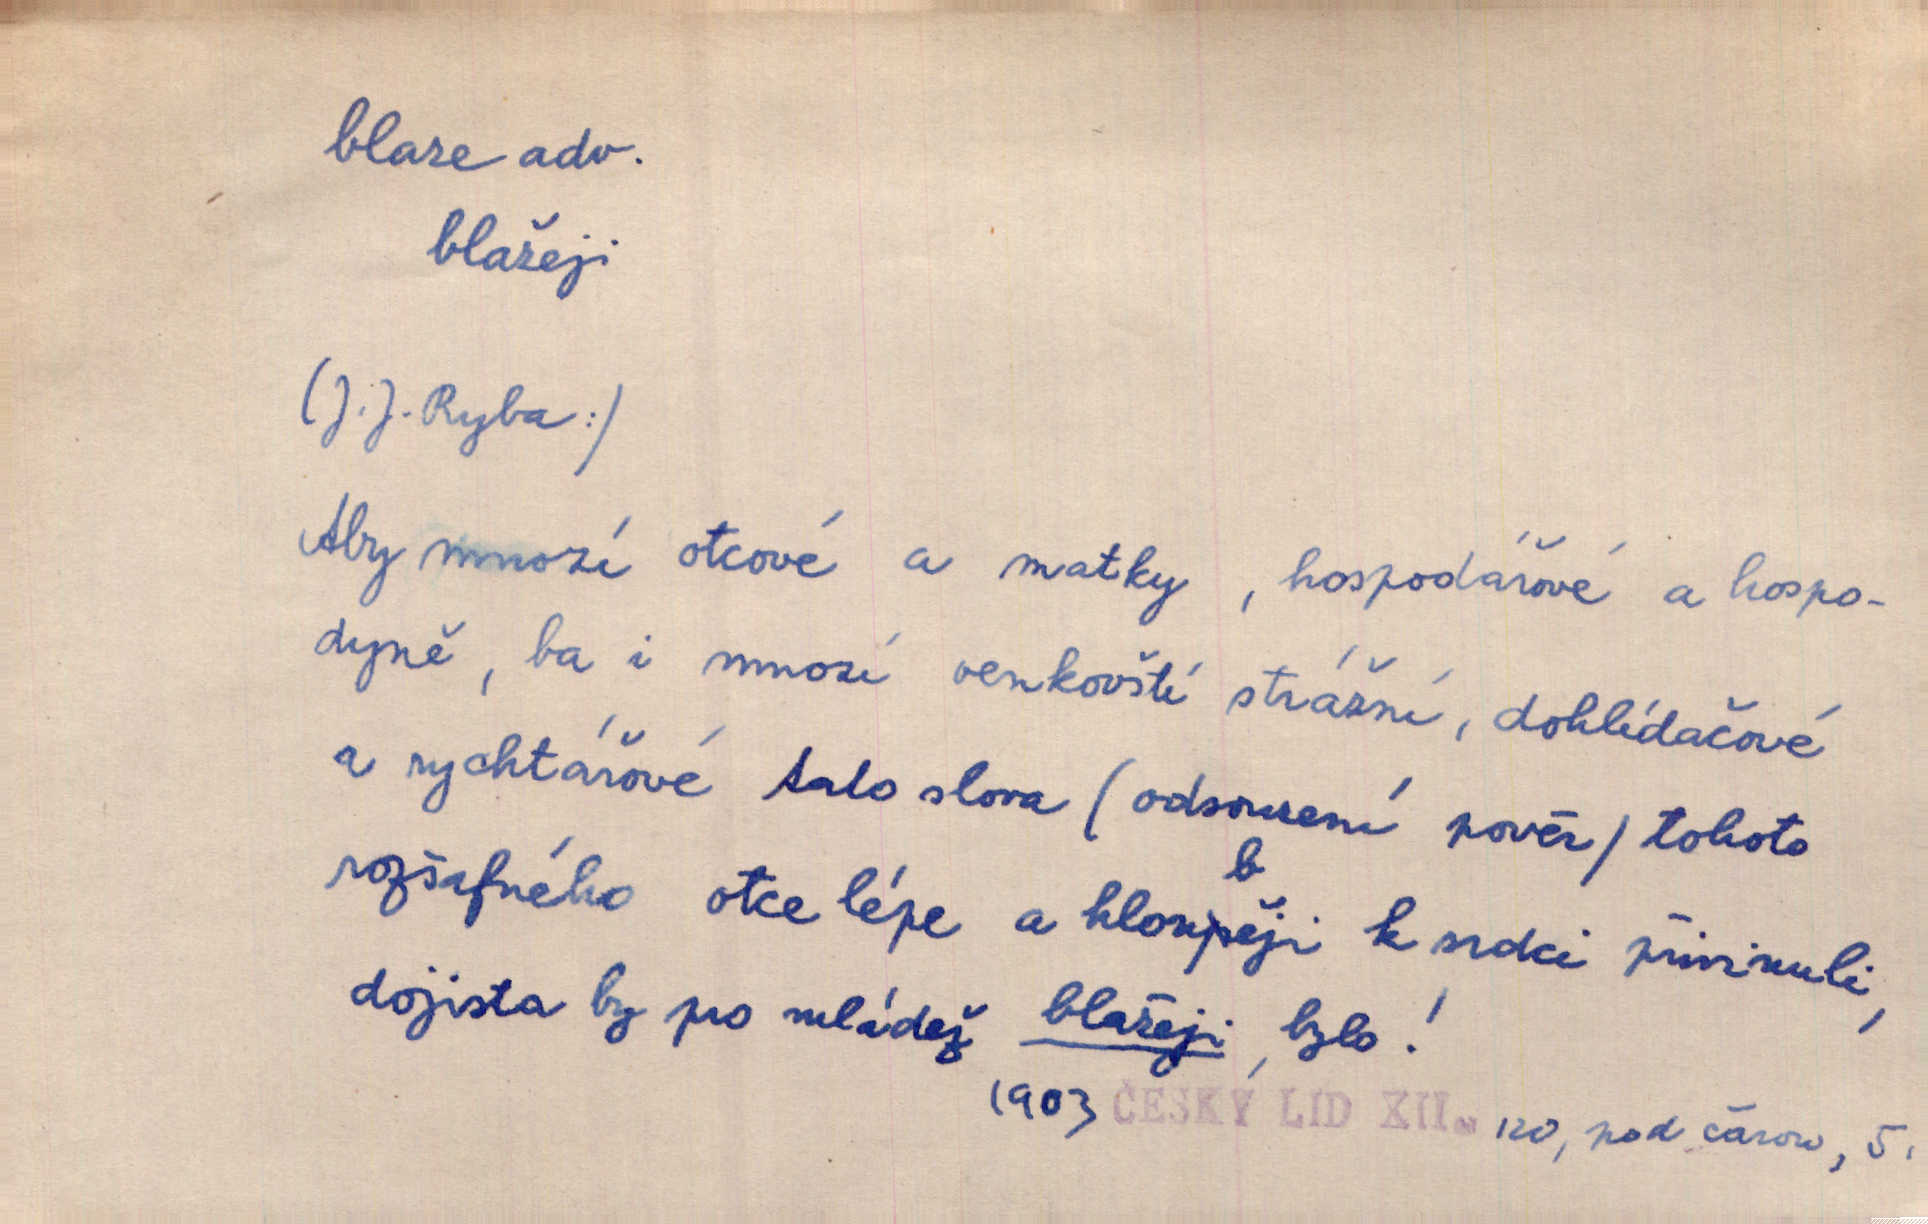 blaze adv.
blažeji
(J. J. Ryba:)
Aby mnozí otcové a matky, hospodářové a hospo-
dyně, ba i mnozí venkovští strážní, dohlídačové
a rychtářové tato slova (odsouzení pověr) tohoto
b
rozšafného otce lépe a hloupěji k srdci přivinuli,
dojista by pro mládež blažeji bylo!
1903 ČESKÝ LID XII. 120, pod čarou, 5.